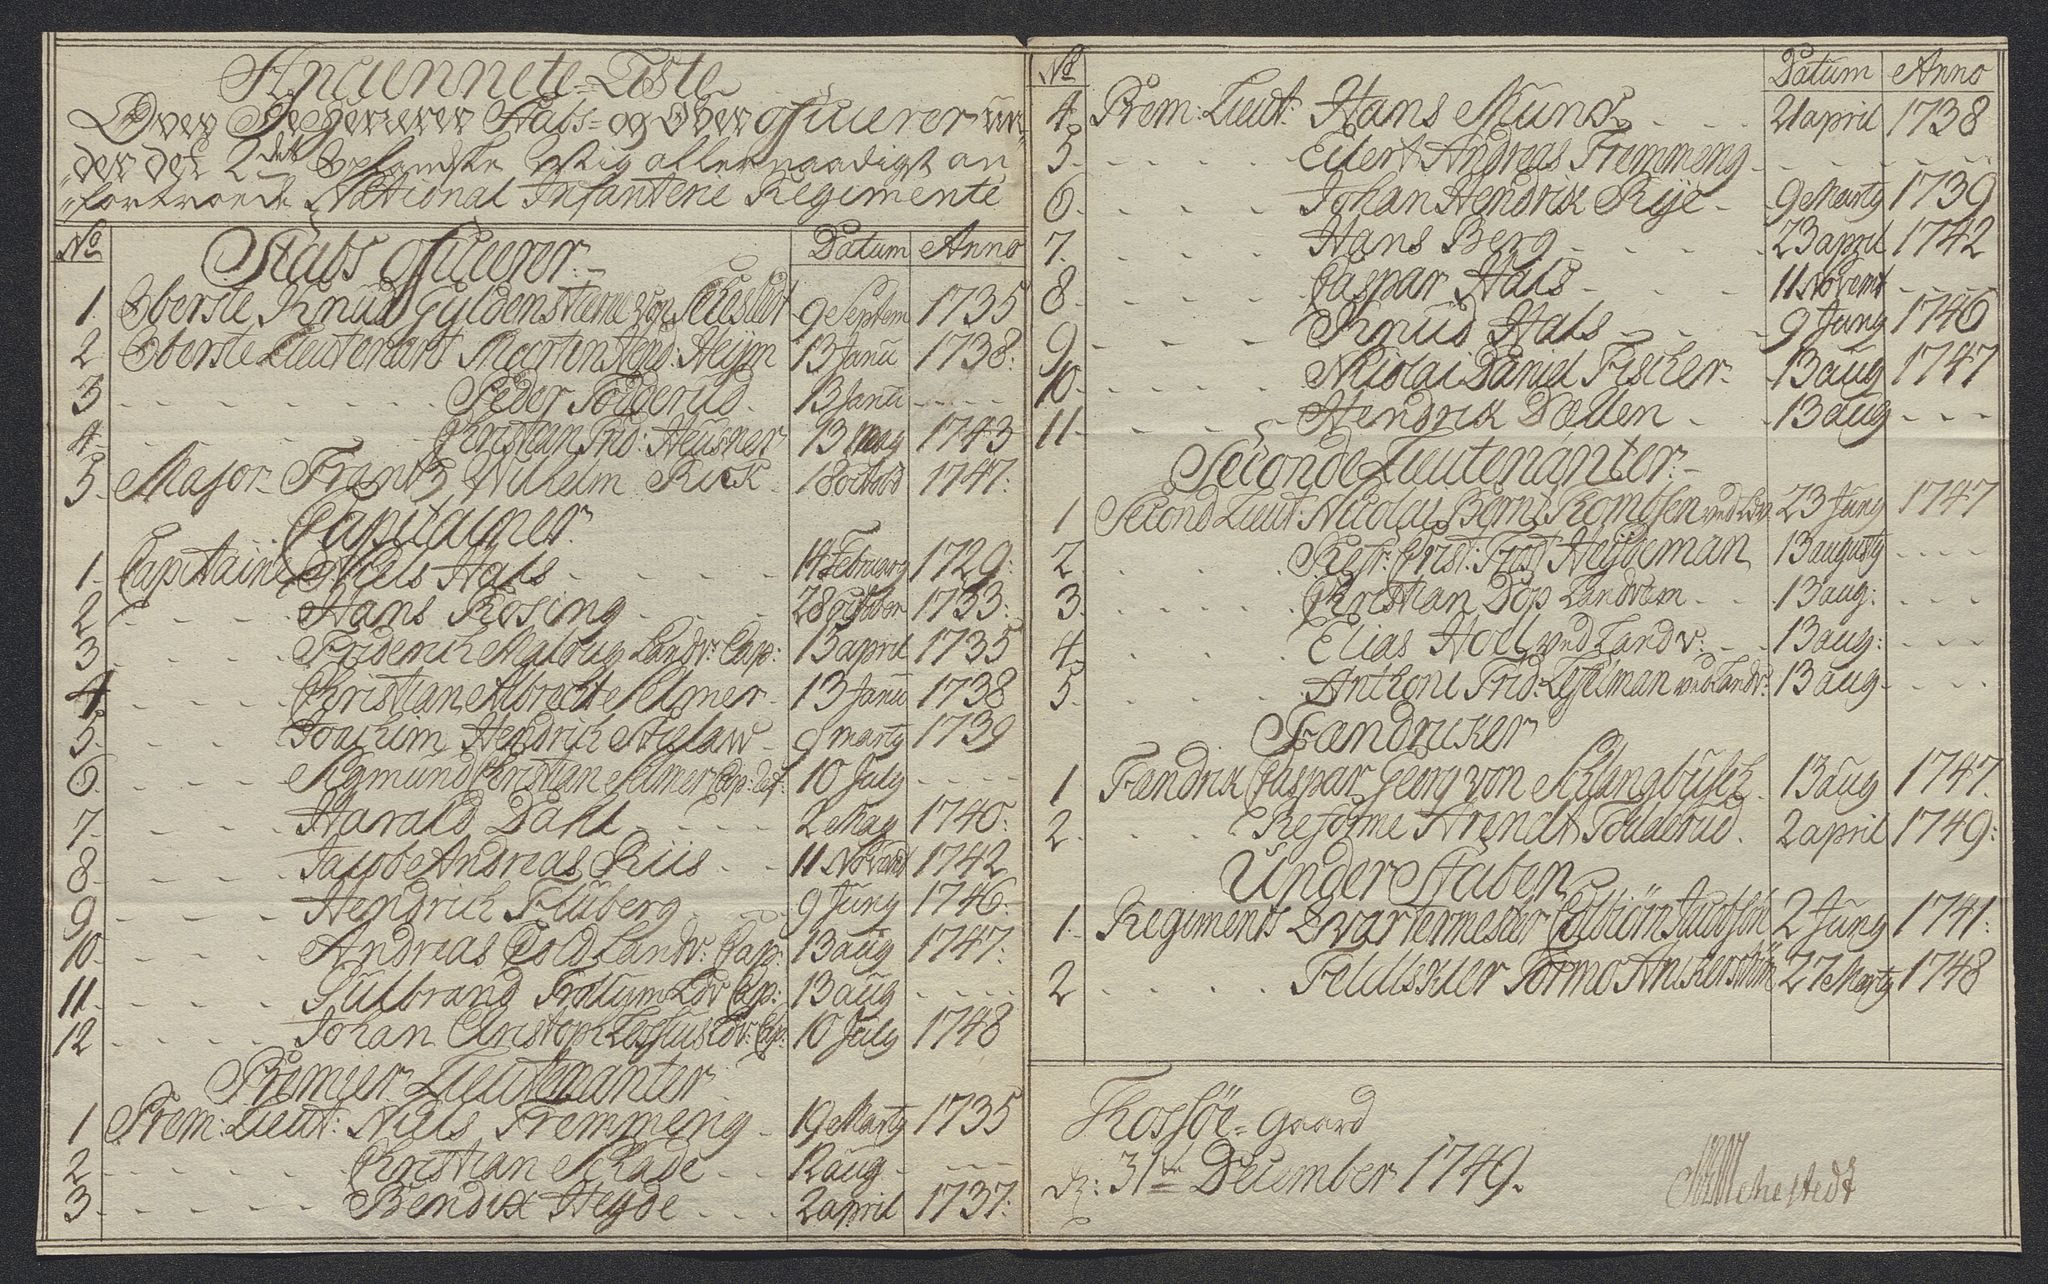 Anciennete-Liste
Over Begge Stabs- og Over officerer un-
der det 2det Oplandske Mig allernaadigst an
fortroede National Infanterie Regimente
No Stabs officerer. Datum Anno
1 Oberste Knud Gyldenstierne von 9 Septem 1735
2 Oberste Lieutenant Morten Hend: Heijm 13 Janu 1738:
3 Peder Tolderud 13 Janu
4. Christian Frid: Heusner 13 May 1743
5. Major Frantz Wilhelm Rick 18 octobr 1747:
Capitainer.
1. Capitaine Niels Hals 14 Februarij 1729:
2 Hans Rosing 28 October 1733:
3 Friderich Maltzug Landv: Cap: 15 april 1735
4 Christian Albrecht Selmer 13 Janu 1738
5. Joachim Hendrich Stielaw 9 marty 1739
6 Sigmund Christian Selmer Cap: def 10 July
7. Harald Dahl 2 May 1740:
8. Jacob Andreas Riis 11 Novemb 1742
9 Hendrich Fluberg 9 Juny 1746:
10. Andreas Cold Landv: Cap: 13 aug 1747:
11. Gulbrand Ldv Cap: 13 aug
12 Johan Christoph Ldv: Cap: 10 July 1748
Premier Lieutenanter
1 Prem: Lieut: Niels Fremmeng 19 Marty 1735
2 Christian Schade 12 aug.
3. Bendix Heyde 2 april 1737:
No Datum Anno
4. Prem: Lieut: Hans Munk 21 april 1738
5. Eilert Andreas Fremmeng
6. Johan Hendrik Rije 9 Marty 1739
7. Hans Berg 23 april 1742
8. Caspar Hals 11 Novemb
9. Knud Hals 9 Juny 1746
10. Nicolai Daniel Fischer 13 aug 1747
11. Hendrik Dællen 13 aug
Seconde Lieutenanter.
1 Second Lieut: Nicolai Bernt Romtsen ved Ldv. 23 Juny 1747
2 Refr: Crist: Frost Heijdeman 13 augusty
3. Christian Dop Landvern 13 aug:
4 Elias Holl ved Landv: 13 aug:
5. Anthoni Frid: Leselman ved Landv: 13 aug
Fændricker
1 Fændrik Caspar Georg von Schlangbusch 13 aug 1747.
2. Reforme Arendt Tolderud. 2 april 1749:
Under Staben
1. Regiments Qvartermester Colbiörn Jacobsön 2 Juny 1741:
2 Feldtskier Tormo Anckerström 27 Marty 1748
Kossöe-gaard
d: 31te December 1749.
Mehestedt